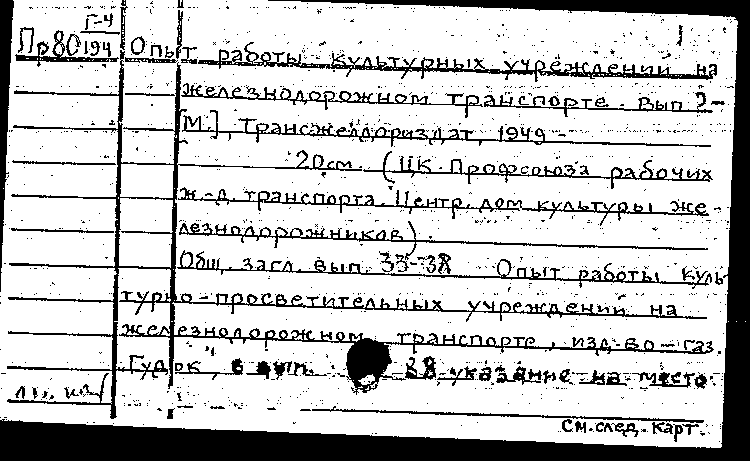 Г-4
Пр80
194
Опыт работы культурных учреждений на
железнодорожном транспорте. Вып 2-
[М.], Трансжелдориздат, 1949-
20см. (ЦК Профсоюза рабочих
ж.-д. транспорта. Центр. дом культуры же-
лезнодорожников).
Общ. загл. вып. 33-38 Опыт работы куль
турно-просветительных учреждений на
железнодорожном транспорте, изд-во-газ.
"Гудок", с вып. 38 указание на место
См. след. карт.